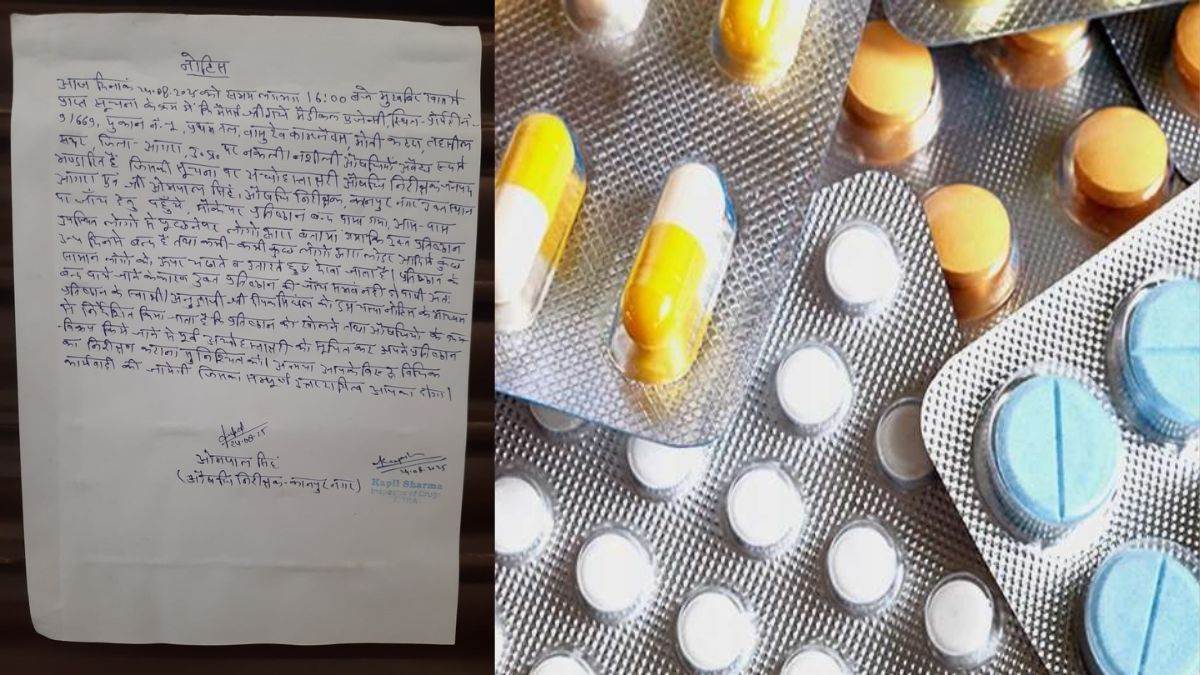 नोटिस
आज दिनांक 24.08.2025 को समय लगभग 16:00 बजे मुखबिर खास से
प्राप्त सूचना के क्रम में कि मैसर्स श्री राधे मेडीकल एजेन्सी, स्थित-
9/669, दुकान नं.-2, प्रथम तल, वासुदेव काम्प्लेक्स, मोती कटरा, तहसील
सदर, जिला- आगरा, उ.प्र. पर नकली/नशीली औषधियाँ अवैध रूप से
भण्डारित हैं जिसकी सूचना पर अधोहस्ताक्षरी औषधि निरीक्षक, जनपद
आगरा एवं श्री ओमपाल सिंह, औषधि निरीक्षक, कानपुर नगर उक्त स्थान
पर जाँच हेतु पहुंचे, मौके पर प्रतिष्ठान बन्द पाया गया, आस-पास
उपस्थित लोगों से पूछने पर लोगों द्वारा बताया गया कि उक्त प्रतिष्ठान
दिन से बन्द है तथा कभी-कभी कुछ लोगों द्वारा आदि से कुछ
सामान लोगों को ऊपर चढ़ाते व उतारते हुए देखा जाता है। प्रतिष्ठान के
बन्द पाये जाने के कारण उक्त प्रतिष्ठान की जाँच सम्भव नहीं हो सकी अतः
प्रतिष्ठान के स्वामी/अनुज्ञापी श्री को इस चस्पा नोटिस के माध्यम
से निर्देशित किया जाता है कि प्रतिष्ठान को खोलने तथा औषधियों के क्रय-
विक्रय किये जाने से पूर्व अधोहस्ताक्षरी को सूचित कर अपने प्रतिष्ठान
का निरीक्षण कराना सुनिश्चित करें। अन्यथा आपके विरुद्ध विधिक
कार्यवाही की जायेगी जिसका सम्पूर्ण उत्तरदायित्व आपका होगा।
24.08.25
ओमपाल सिंह
(औषधि निरीक्षक-कानपुर नगर)
24.08.2025
Kapil Sharma
Inspector of Drugs